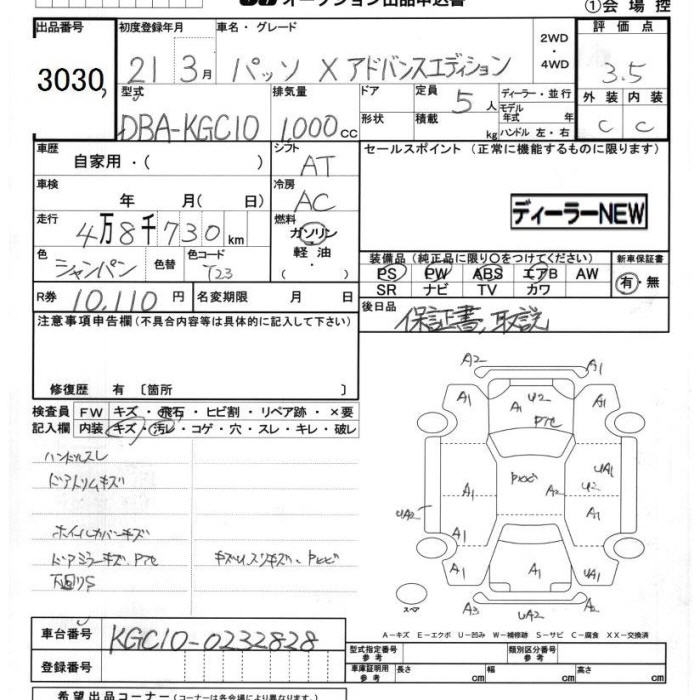 オークション出品申込書
①会場控
出品番号 初度登録年月 車名・グレード 2WD・4WD 評価点
3030 21 3月 パッソ X アドバンスエディション 3.5
型式 排気量 ドア 定員 5人 ディーラー・並行 外装 内装
DBA-KGC10 1,000cc 形状 積載 kg モデル年式 年 C C
ハンドル 左・右
車歴 シフト セールスポイント (正常に機能するものに限ります)
自家用・( ) AT
車検 冷房
年 月( 日) AC
ディーラーNEW
走行 燃料
4万8千730km ガソリン
軽油
・( )
色 色替 色コード 装備品 (純正品に限り〇をつけてください) 新車保証書
シャンパン T23 PS PW ABS エアB AW 有・無
SR ナビ TV カワ
R券 10,110円 名変期限 月 日 後日品
保証書、取説
注意事項申告欄 (不具合内容等は具体的に記入して下さい)
修復歴 有 〔箇所 〕
検査員 FW キズ・飛石・ヒビ割・リペア跡・×要
記入欄 内装 キズ・汚レ・コゲ・穴・スレ・キレ・破レ
ハンドルスレ
ドアトリムキズ
ホイールカバーキズ
ドアミラーキズ、Pアセ キズU、スリキズ、Pトビ
下回りS
A2 A1
A1 A1 U2 A1
Pアセ
Pトビ UA1
A1 A2 U2
UA2 A1
A1
A1 A1 UA1
スペア A3 UA2 A1
A-キズ E-エクボ U-凹み W-補修跡 S-サビ C-腐食 XX-交換済
車台番号 KGC10-0232828
登録番号
型式指定番号 参考 類別区分番号 参考
車庫証明用 参考 長さ cm 幅 cm 高さ cm
希望出品コーナー (コーナーは各会場により異なります。)